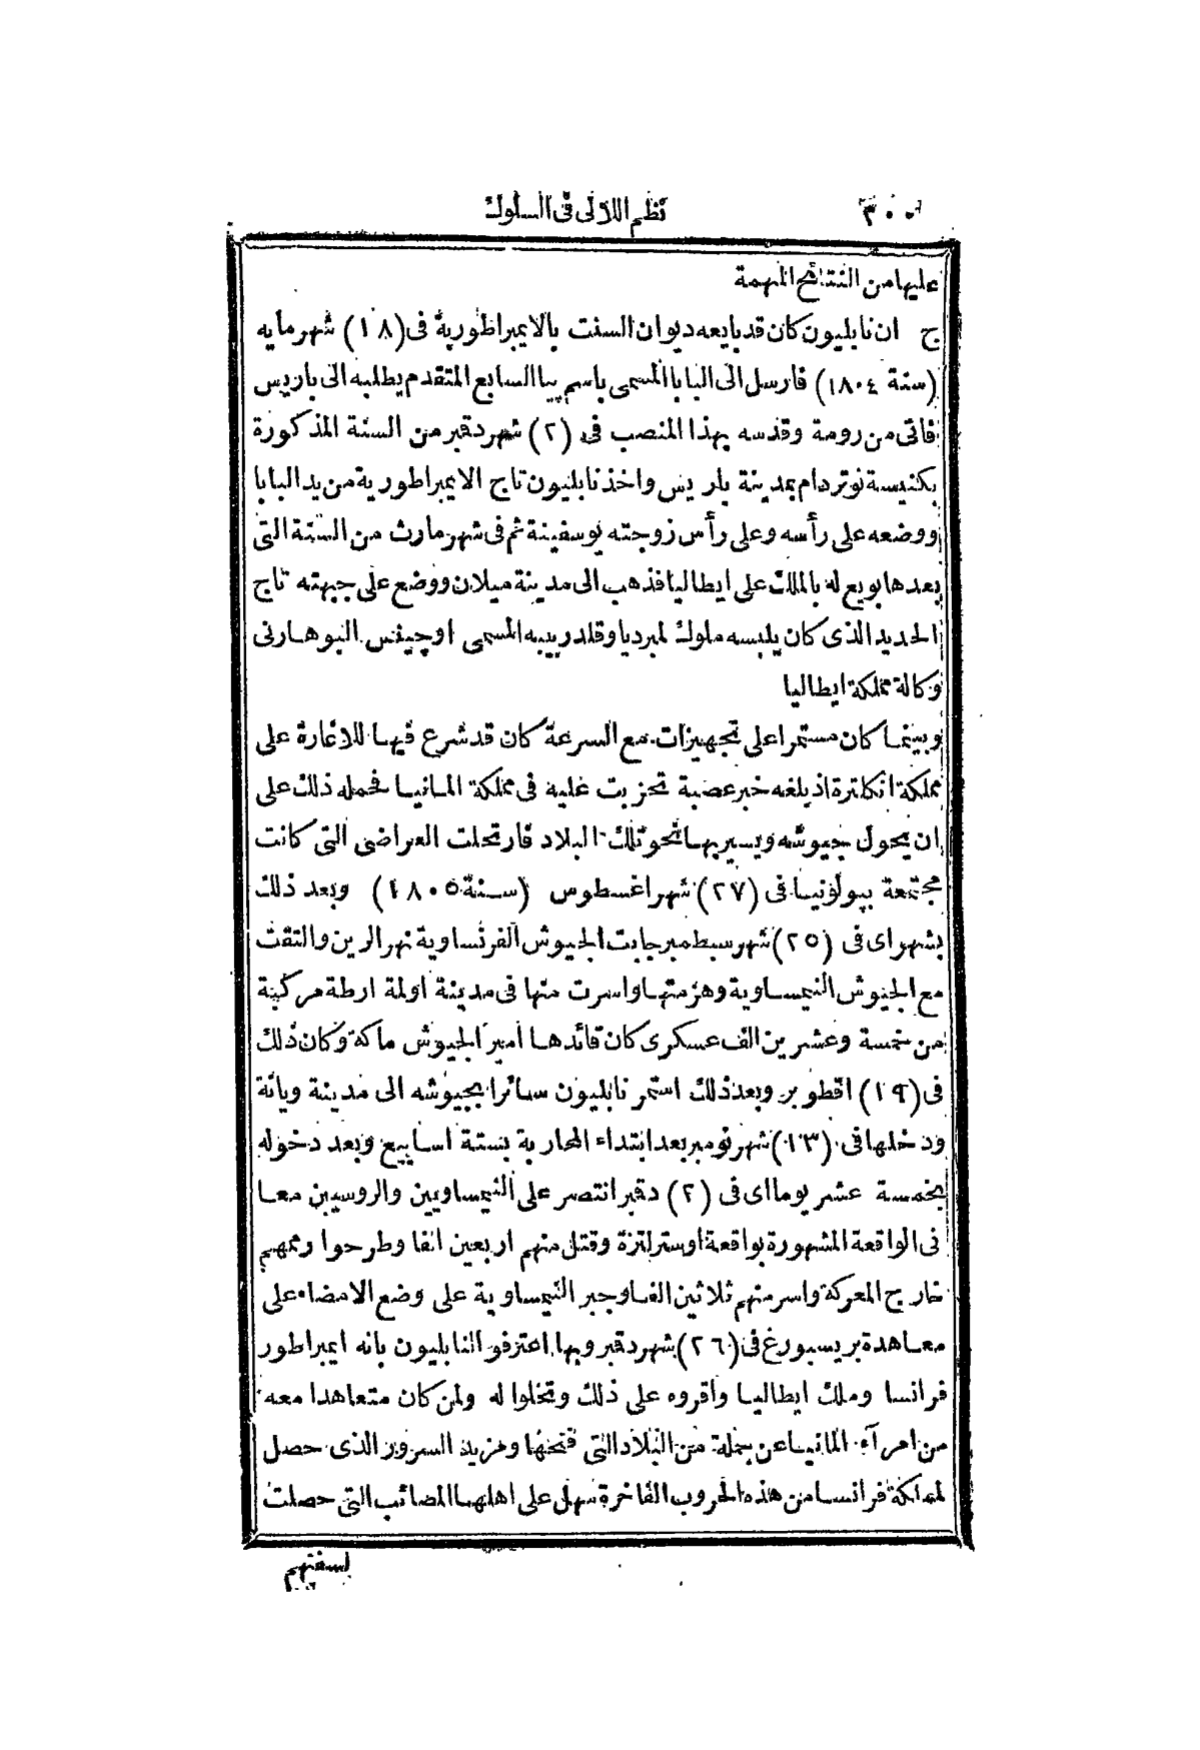 ٣٠٠ نظم اللآلى فى السلوك
عليها من النتائج المهمة
ج ان نابليون كان قد بايعه ديوان السنت بالايمبراطورية فى (١٨) شهر مايه
(سنة ١٨٠٤) فارسل الى البابا المسمى باسم پيا السابع المتقدم يطلبه الى باريس
فاتى من رومة وقدسه بهذا المنصب فى (٢) شهر دقمبر من السنة المذكورة
بكنيسة نوتردام بمدينة باريس واخذ نابليون تاج الايمبراطورية من يد البابا
ووضعه على رأسه وعلى رأس زوجته يوسفينة ثم فى شهر مارث من السنة التى
بعدها بويع له بالملك على ايطاليا فذهب الى مدينة ميلان ووضع على جبهته تاج
الحديد الذى كان يلبسه ملوك لمبرديا وقلد ربيبه المسمى اوچينس البوهارنى
وكالة مملكة ايطاليا
وبينما كان مستمرا على تجهيزات مع السرعة كان قد شرع فيها للاغارة على
مملكة انكلترة اذ بلغه خبر عصبة تحزبت عليه فى مملكة المانيا فحمله ذلك على
ان يحول جيوشه ويسير بها نحو تلك البلاد فارتحلت العراضى التى كانت
مجتمعة ببولونيا فى (٢٧) شهر اغسطوس (سنة ١٨٠٥) وبعد ذلك
بشهر اى فى (٢٥) شهر سبطمبر جابت الجيوش الفرنساوية نهر الرين والتقت
مع الجيوش النيمساوية وهزمتها واسرت منها فى مدينة اولمة ارطة مركبة
من خمسة وعشرين الف عسكرى كان قائدها امير الجيوش ماكة وكان ذلك
فى (١٩) اقطوبر وبعد ذلك استمر نابليون سائرا بجيوشه الى مدينة ويانة
ودخلها فى (١٣) شهر نومبر بعد ابتداء المحاربة بستة اسابيع وبعد دخوله
بخمسة عشر يوما اى فى (٢) دقمبر انتصر على النيمساويين والروسيين معا
فى الواقعة المشهورة بواقعة اوسترلتزة وقتل منهم اربعين الفا وطرحوا رممهم
خارج المعركة واسر منهم ثلاثين الفا وجبر النيمساوية على وضع الامضاء على
معاهدة بريسبورغ فى (٢٦) شهر دقمبر وبها اعترفوا لنابليون بانه ايمبراطور
فرانسا وملك ايطاليا واقروه على ذلك وتخلوا له ولمن كان متعاهدا معه
من امرآء المانيا عن جملة من البلاد التى فتحها ومزيد السرور الذى حصل
لمملكة فرانسا من هذه الحروب الفاخرة سهل على اهلها المصائب التى حصلت
لسفنهم